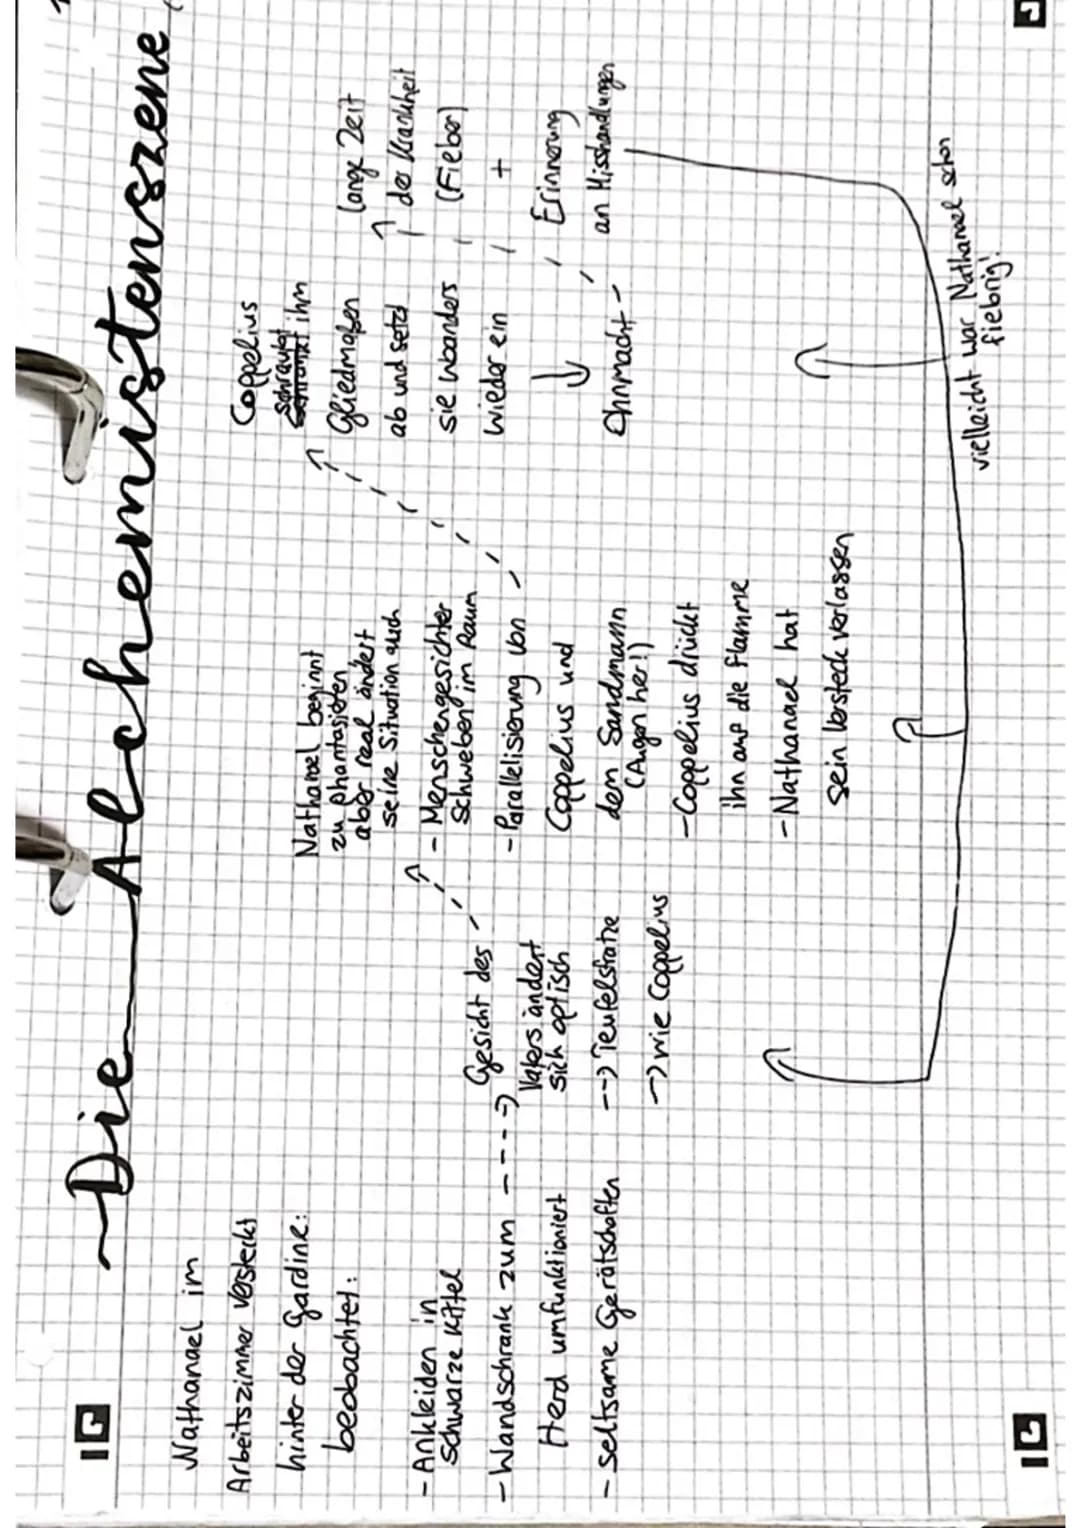 Die Alchemistenszene
Nathanael im
Arbeitszimmer versteckt
hinter der Gardine:
beobachtet:
- Ankleiden in
schwarze Kittel
- Wandschrank zum
Herd umfunktioniert
- seltsame Gerätschaften
Gesicht des
Vaters ändert
sich optisch
--> Teufelsfratze
--> wie Coppelius
Nathanael beginnt
zu phantasieren
aber real ändert
seine Situation auch
- Menschengesichter
schweben im Raum
- Parallelisierung von
Coppelius und
dem Sandmann
(Augen her!)
- Coppelius drückt
ihn auf die Flamme
- Nathanael hat
sein Versteck verlassen
Coppelius
schraubt ihm
Gliedmaßen
ab und setzt
sie woanders
wieder ein
Ohnmacht
lange Zeit
der Krankheit
(Fieber)
+
Erinnerung
an Misshandlungen
vielleicht war Nathanael schon
fiebrig!